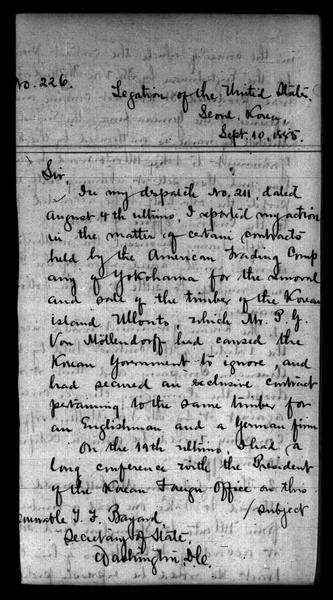 No. 226.
Legation of the United States.
Seoul, Korea,
Sept. 10, 1885.
Sir,
In my despatch No. 211, dated
August 4th ultimo, I reported my action
in the matter of certain contracts
held by the American Trading Comp
any of Yokohama for the removal
and sale of the timber of the Korean
island Ullonto, which Mr. P. G.
Von Möllendorff had caused the
Korean Government to ignore, and
had secured an exclusive contract
pertaining to the same timber for
an Englishman and a German firm
On the 19th ultimo, I had a
long conference with the President
of the Korean Foreign Office on this
/subject
Honorable T. F. Bayard,
Secretary of State,
Washington, D.C.